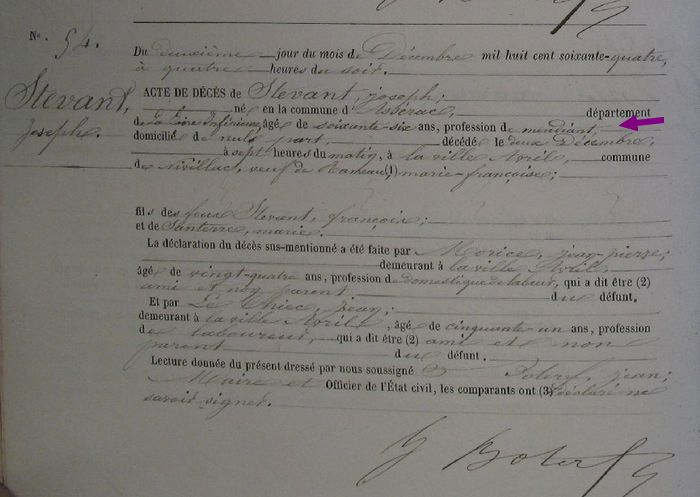 N° 54.
Du deuxième jour du mois de Décembre mil huit cent soixante-quatre,
à quatre heures du soir.
Stevant,
Joseph.
ACTE DE DÉCÈS de Stevant, Joseph;
né en la commune d'Assérac, département
de la Loire Inférieure, âgé de soixante-six ans, profession de mendiant,
domicilié de nule part, décédé le deux Décembre,
à sept heures du matin, à la ville Avril, commune
de nivillac, veuf de Rameau, (1) marie-françoise;
fils des feus Stevant, françois;
et de Santerre, marie.
La déclaration du décès sus-mentionné a été faite par Morice, jean-pierre;
demeurant à la ville Avril,
âgé de vingt-quatre ans, profession de domestique de labeur, qui a dit être (2)
ami et non parent du défunt.
Et par Le Thiec, jean;
demeurant à la ville Avril, âgé de cinquante un ans, profession
de laboureur, qui a dit être (2) ami et non
parent du défunt.
Lecture donnée du présent dressé par nous soussigné jean;
Maire et Officier de l'État civil, les comparants ont (3) déclaré ne
savoir signer.